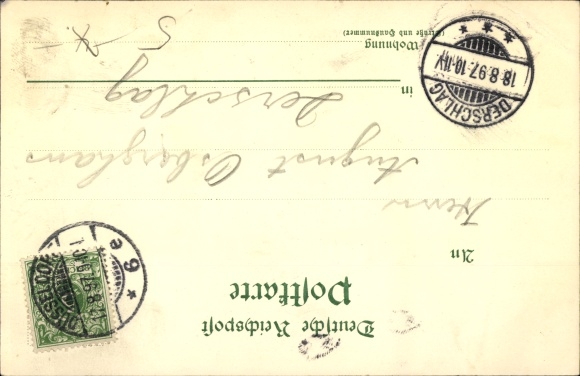 Deutsche Reichspost
Postkarte
An
Herrn
August Osberghaus
in Derschlag
Wohnung
(Straße und Hausnummer)
DERSCHLAG
18.8.97.10-11V.
* * *
* 6 e